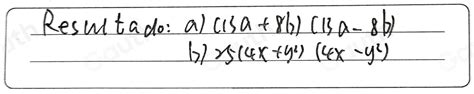 Resultado: a) (13a + 8b) (13a - 8b)
b) 25(4x + y²) (4x - y²)